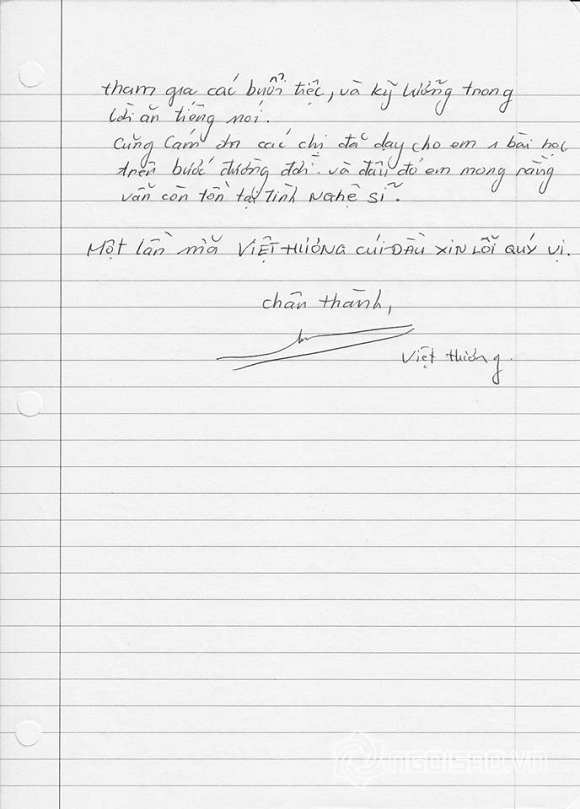 tham gia các buổi tiệc, và kỹ lưỡng trong
lời ăn tiếng nói.
Cũng cám ơn các chị đã dạy cho em 1 bài học
trên bước đường đời. và đâu đó em mong rằng
vẫn còn tồn tại tình nghệ sĩ.
Một lần nữa VIỆT HƯƠNG CÚI ĐẦU XIN LỖI QUÝ VỊ.
chân thành,
Việt Hương.
NGOISAO.VN